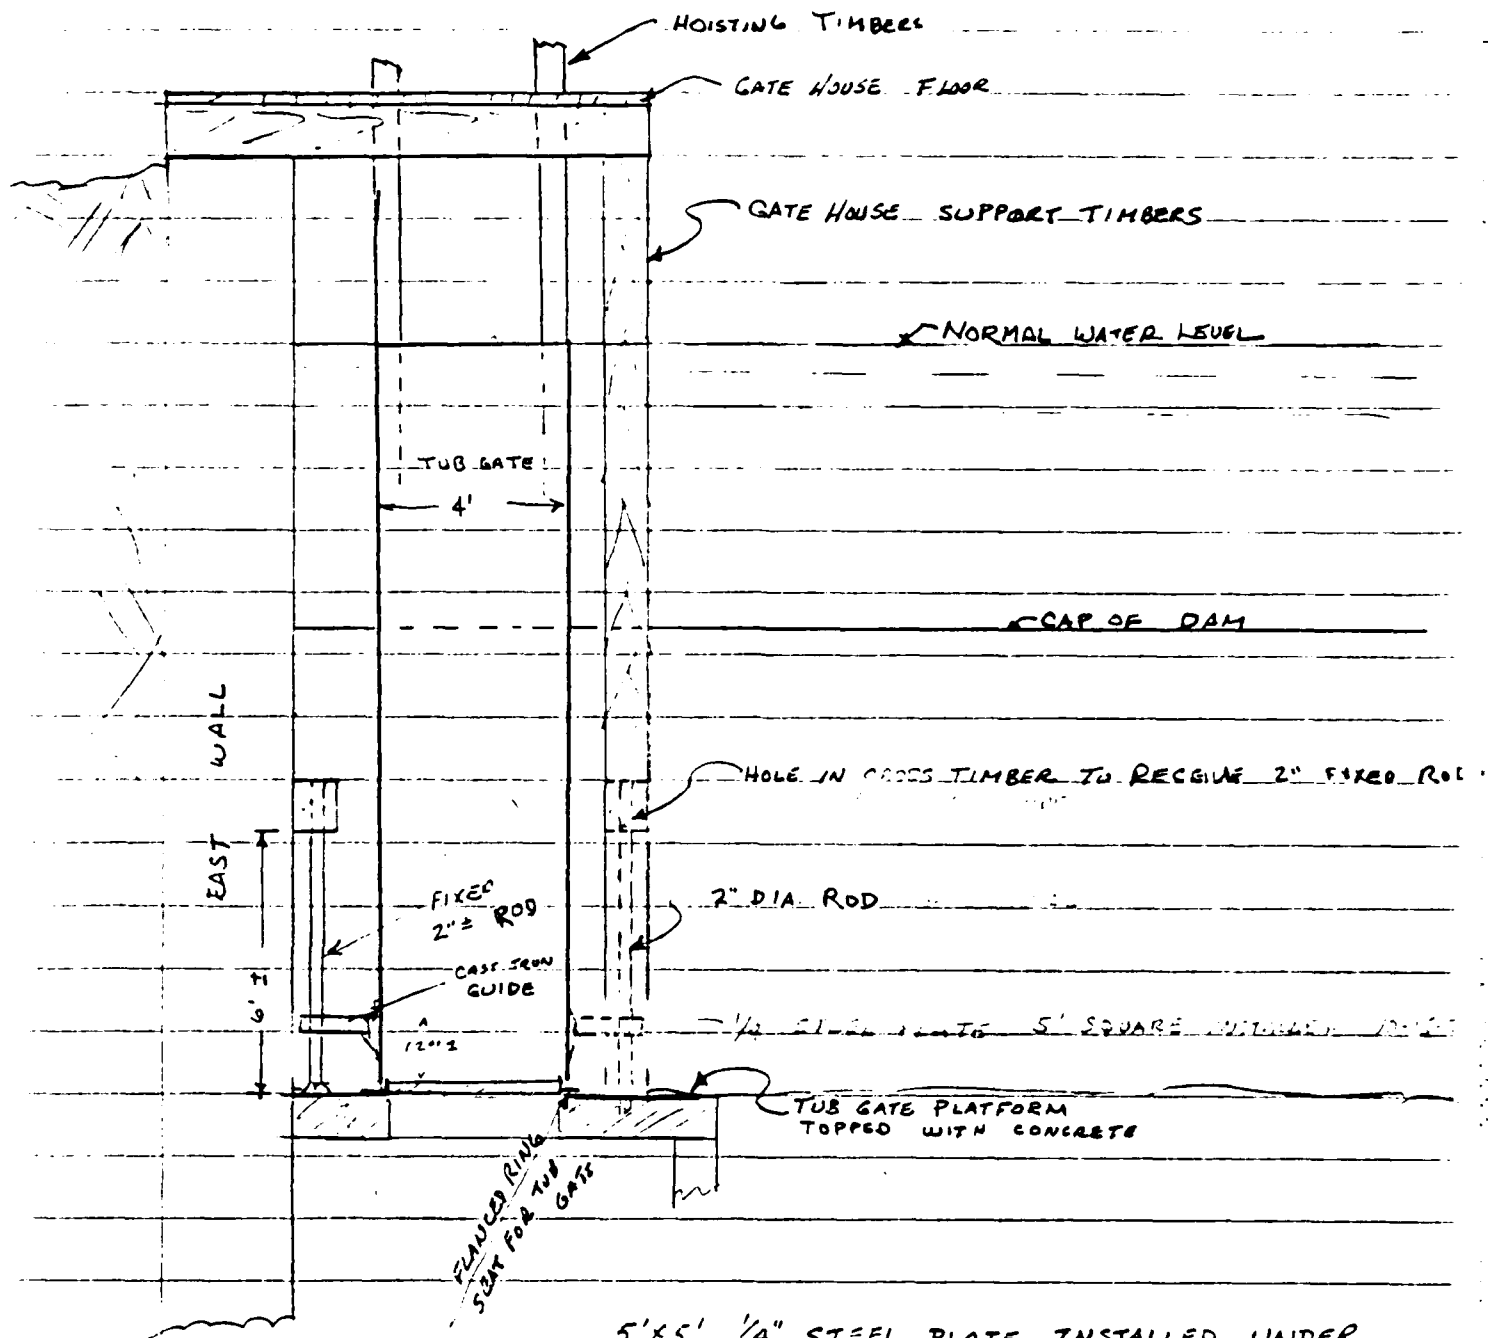 HOISTING TIMBERS
GATE HOUSE FLOOR
GATE HOUSE SUPPORT TIMBERS
NORMAL WATER LEVEL
TUB GATE
4'
CAP OF DAM
EAST WALL
HOLE IN CROSS TIMBER TO RECEIVE 2" FIXED ROD
FIXED
2"± ROD
2" DIA. ROD
CAST IRON
GUIDE
6' ±
12" ±
STEEL PLATE 5' SQUARE
TUB GATE PLATFORM
TOPPED WITH CONCRETE
FLANGED RING
SEAT FOR TUB
GATE
5'x5' 1/4" STEEL PLATE INSTALLED UNDER